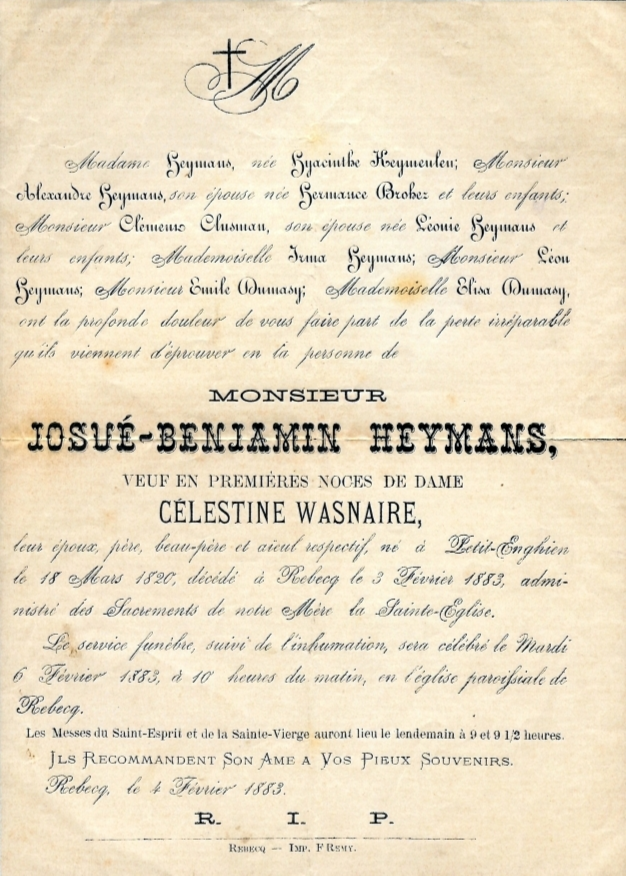 M
Madame Heymans, née Hyacinthe Heymeulen; Monsieur
Alexandre Heymans, son épouse née Hermance Brohez et leurs enfants;
Monsieur Clémenx Clusman, son épouse née Léonie Heymans et
leurs enfants; Mademoiselle Irma Heymans; Monsieur Léon
Heymans; Monsieur Emile Dumasy; Mademoiselle Elisa Dumasy,
ont la profonde douleur de vous faire part de la perte irréparable
qu'ils viennent d'éprouver en la personne de
MONSIEUR
JOSUÉ-BENJAMIN HEYMANS,
VEUF EN PREMIÈRES NOCES DE DAME
CÉLESTINE WASNAIRE,
leur époux, père, beau-père et aïeul respectif, né à Petit-Enghien
le 18 Mars 1820, décédé à Rebecq le 3 Février 1883, admi-
nistré des Sacrements de notre Mère la Sainte-Eglise.
Le service funèbre, suivi de l'inhumation, sera célébré le Mardi
6 Février 1883, à 10 heures du matin, en l'église paroissiale de
Rebecq.
Les Messes du Saint-Esprit et de la Sainte-Vierge auront lieu le lendemain à 9 et 9 1/2 heures.
ILS RECOMMANDENT SON AME A VOS PIEUX SOUVENIRS.
Rebecq, le 4 Février 1883.
R. I. P.
REBECQ — IMP. F REMY.